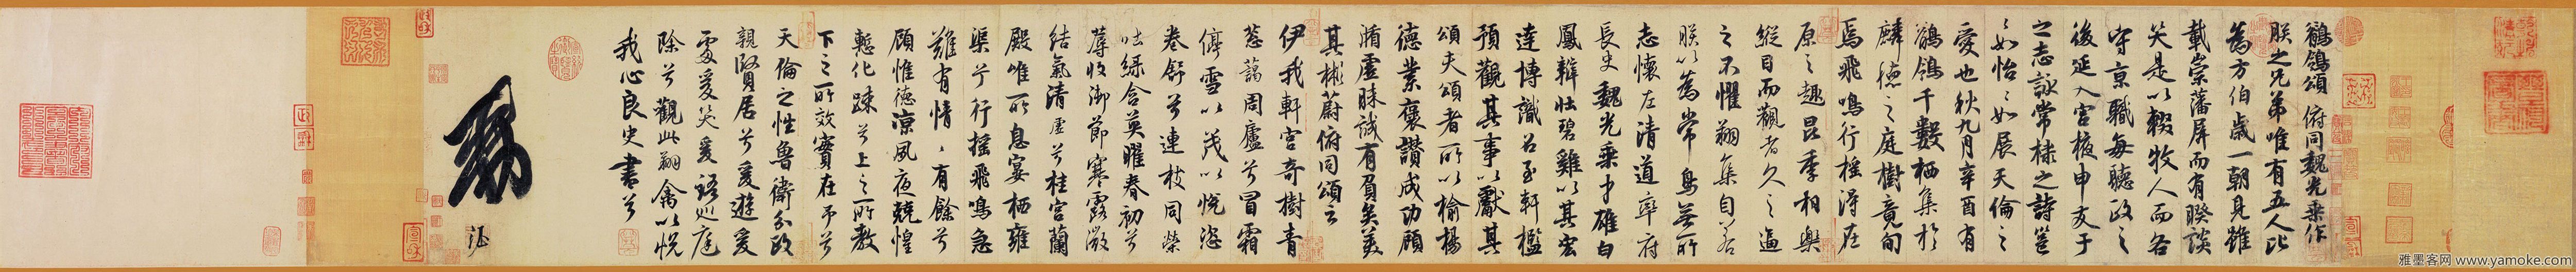 鶺鴒頌 俯同魏光乘作
朕之兄弟唯有五人比
為方伯歲一朝見雖
載崇藩屏而有睽談
笑是以輟牧人而各
守京職每聽政之
後延入宮掖申友于
之志詠常棣之詩邕
邕如怡怡如展天倫之
愛也秋九月辛酉有
鶺鴒千數栖集於
麟德之庭樹竟旬
焉飛鳴行搖得在
原之趣昆季相樂
縱目而觀者久之逼
之不懼翔集自若
朕以為常鳥無所
志懷左清道率府
長史魏光乘才雄白
鳳辯壯碧雞以其宏
達博識召至軒檻
預觀其事以獻其
頌夫頌者所以揄揚
德業褒讚成功顧
循虛昧誠有負矣美
其彬蔚俯同頌云
伊我軒宮奇樹青
蔥藹周廬兮冒霜
停雪以茂以悅恣
卷舒兮連枝同榮
吐綠含英曜春初兮
蓐收御節寒露微
結氣清虛兮桂宮蘭
殿唯所息宴栖雍
渠兮行搖飛鳴急
難有情情有餘兮
顧惟德涼夙夜兢惶
慙化疎兮上之所教
下之所效實在予兮
天倫之性魯衛分政
親賢居兮爰遊爰
處爰笑爰語巡庭
除兮觀此翔禽以悅
我心良史書兮
雅墨客网 www.yamoke.com